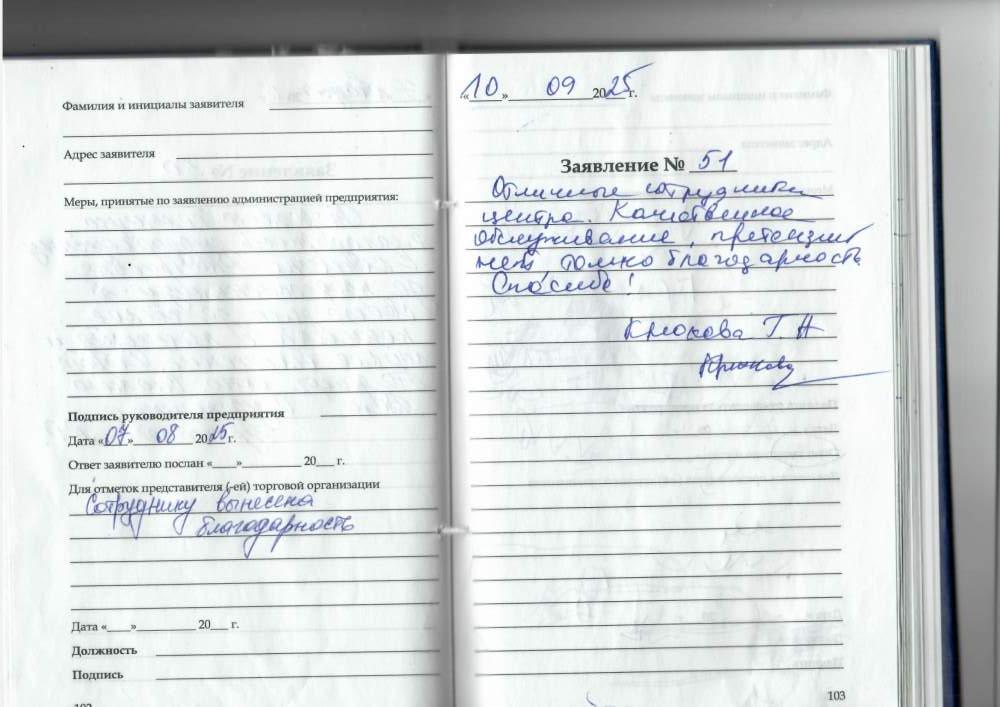 Фамилия и инициалы заявителя
Адрес заявителя
Меры, принятые по заявлению администрацией предприятия:
Подпись руководителя предприятия
Дата «07» 08 2025 г.
Ответ заявителю послан «____»__________ 20___ г.
Для отметок представителя (-ей) торговой организации
Сотруднику вынесена
благодарность
Дата «____»__________ 20___ г.
Должность
Подпись
«10» 09 2025 г.
Заявление № 51
Отличные сотрудники
центра. Качественное
обслуживание, претензий
нет, только благодарность.
Спасибо!
Крюкова Г. Н
Крюкова
103